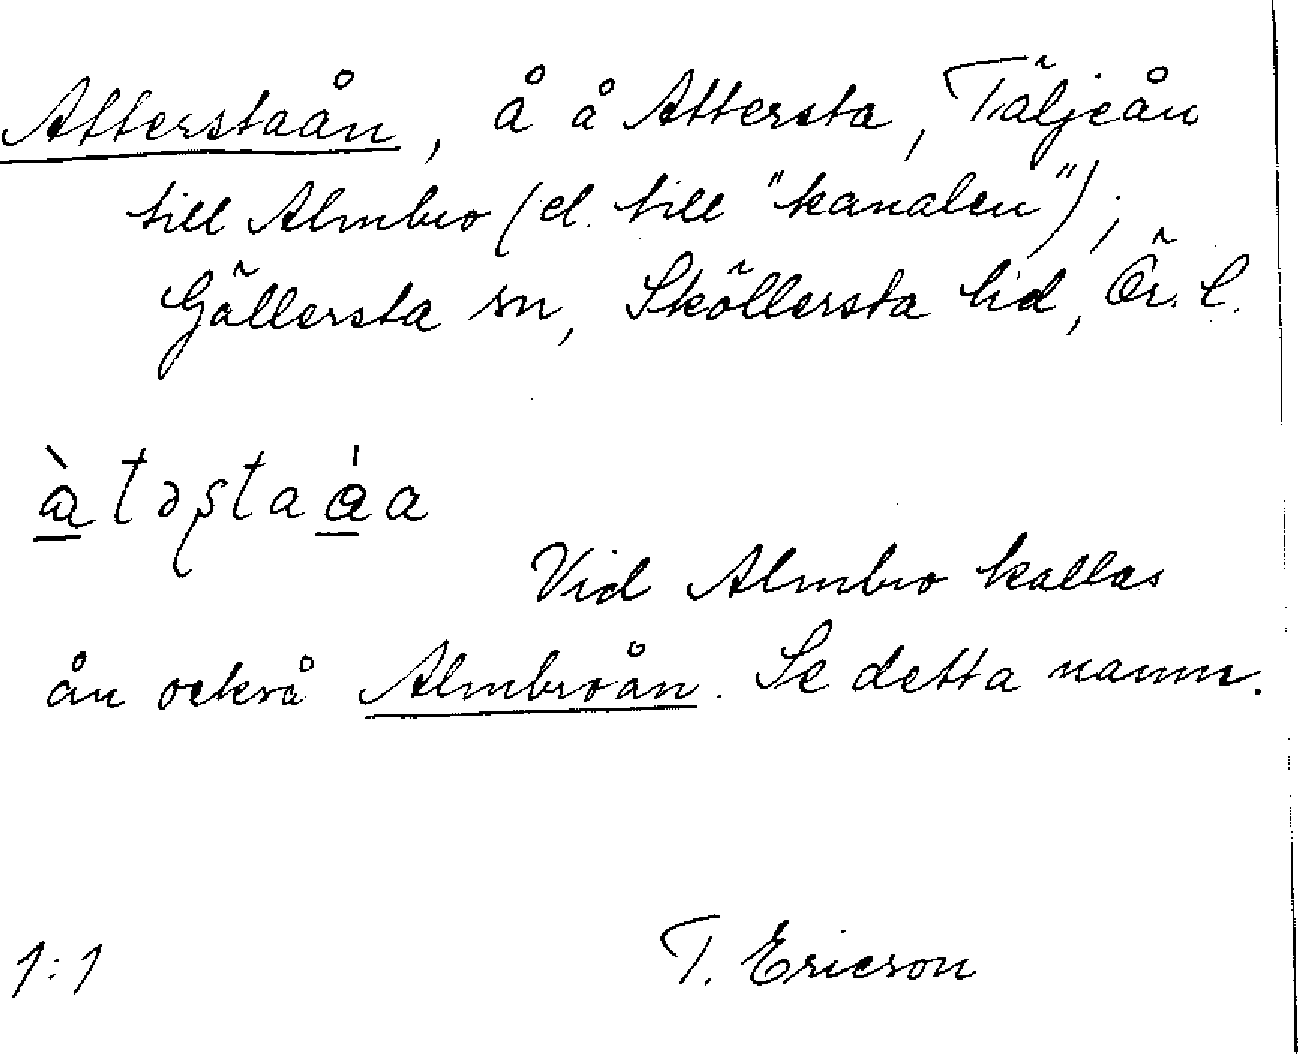 Atterstaån, å å Attersta, Täljeån
till Almbro (el. till "kanalen");
Gällersta sn, Sköllersta hd, Ör. l.
àtəʂtaáa
Vid Almbro kallas
ån också Almbroån. Se detta namn.
1:1 T. Ericson